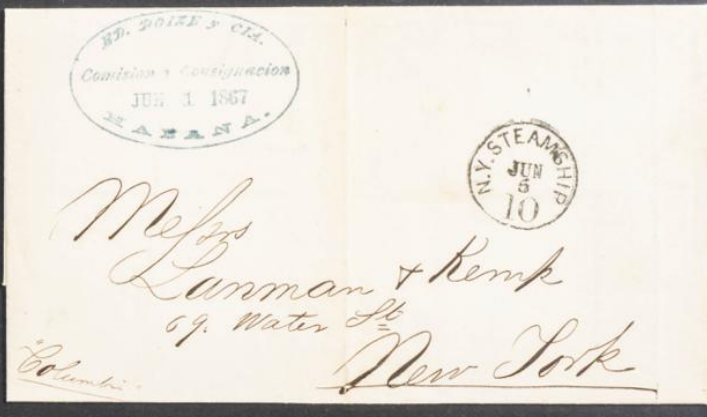 ED. DOIZE Y CIA.
Comision y Consignacion
JUN 1 1867
HABANA.
N.Y. STEAMSHIP
JUN
5
10
Messrs
Lanman & Kemp
69. Water St
New York
"Columbia"